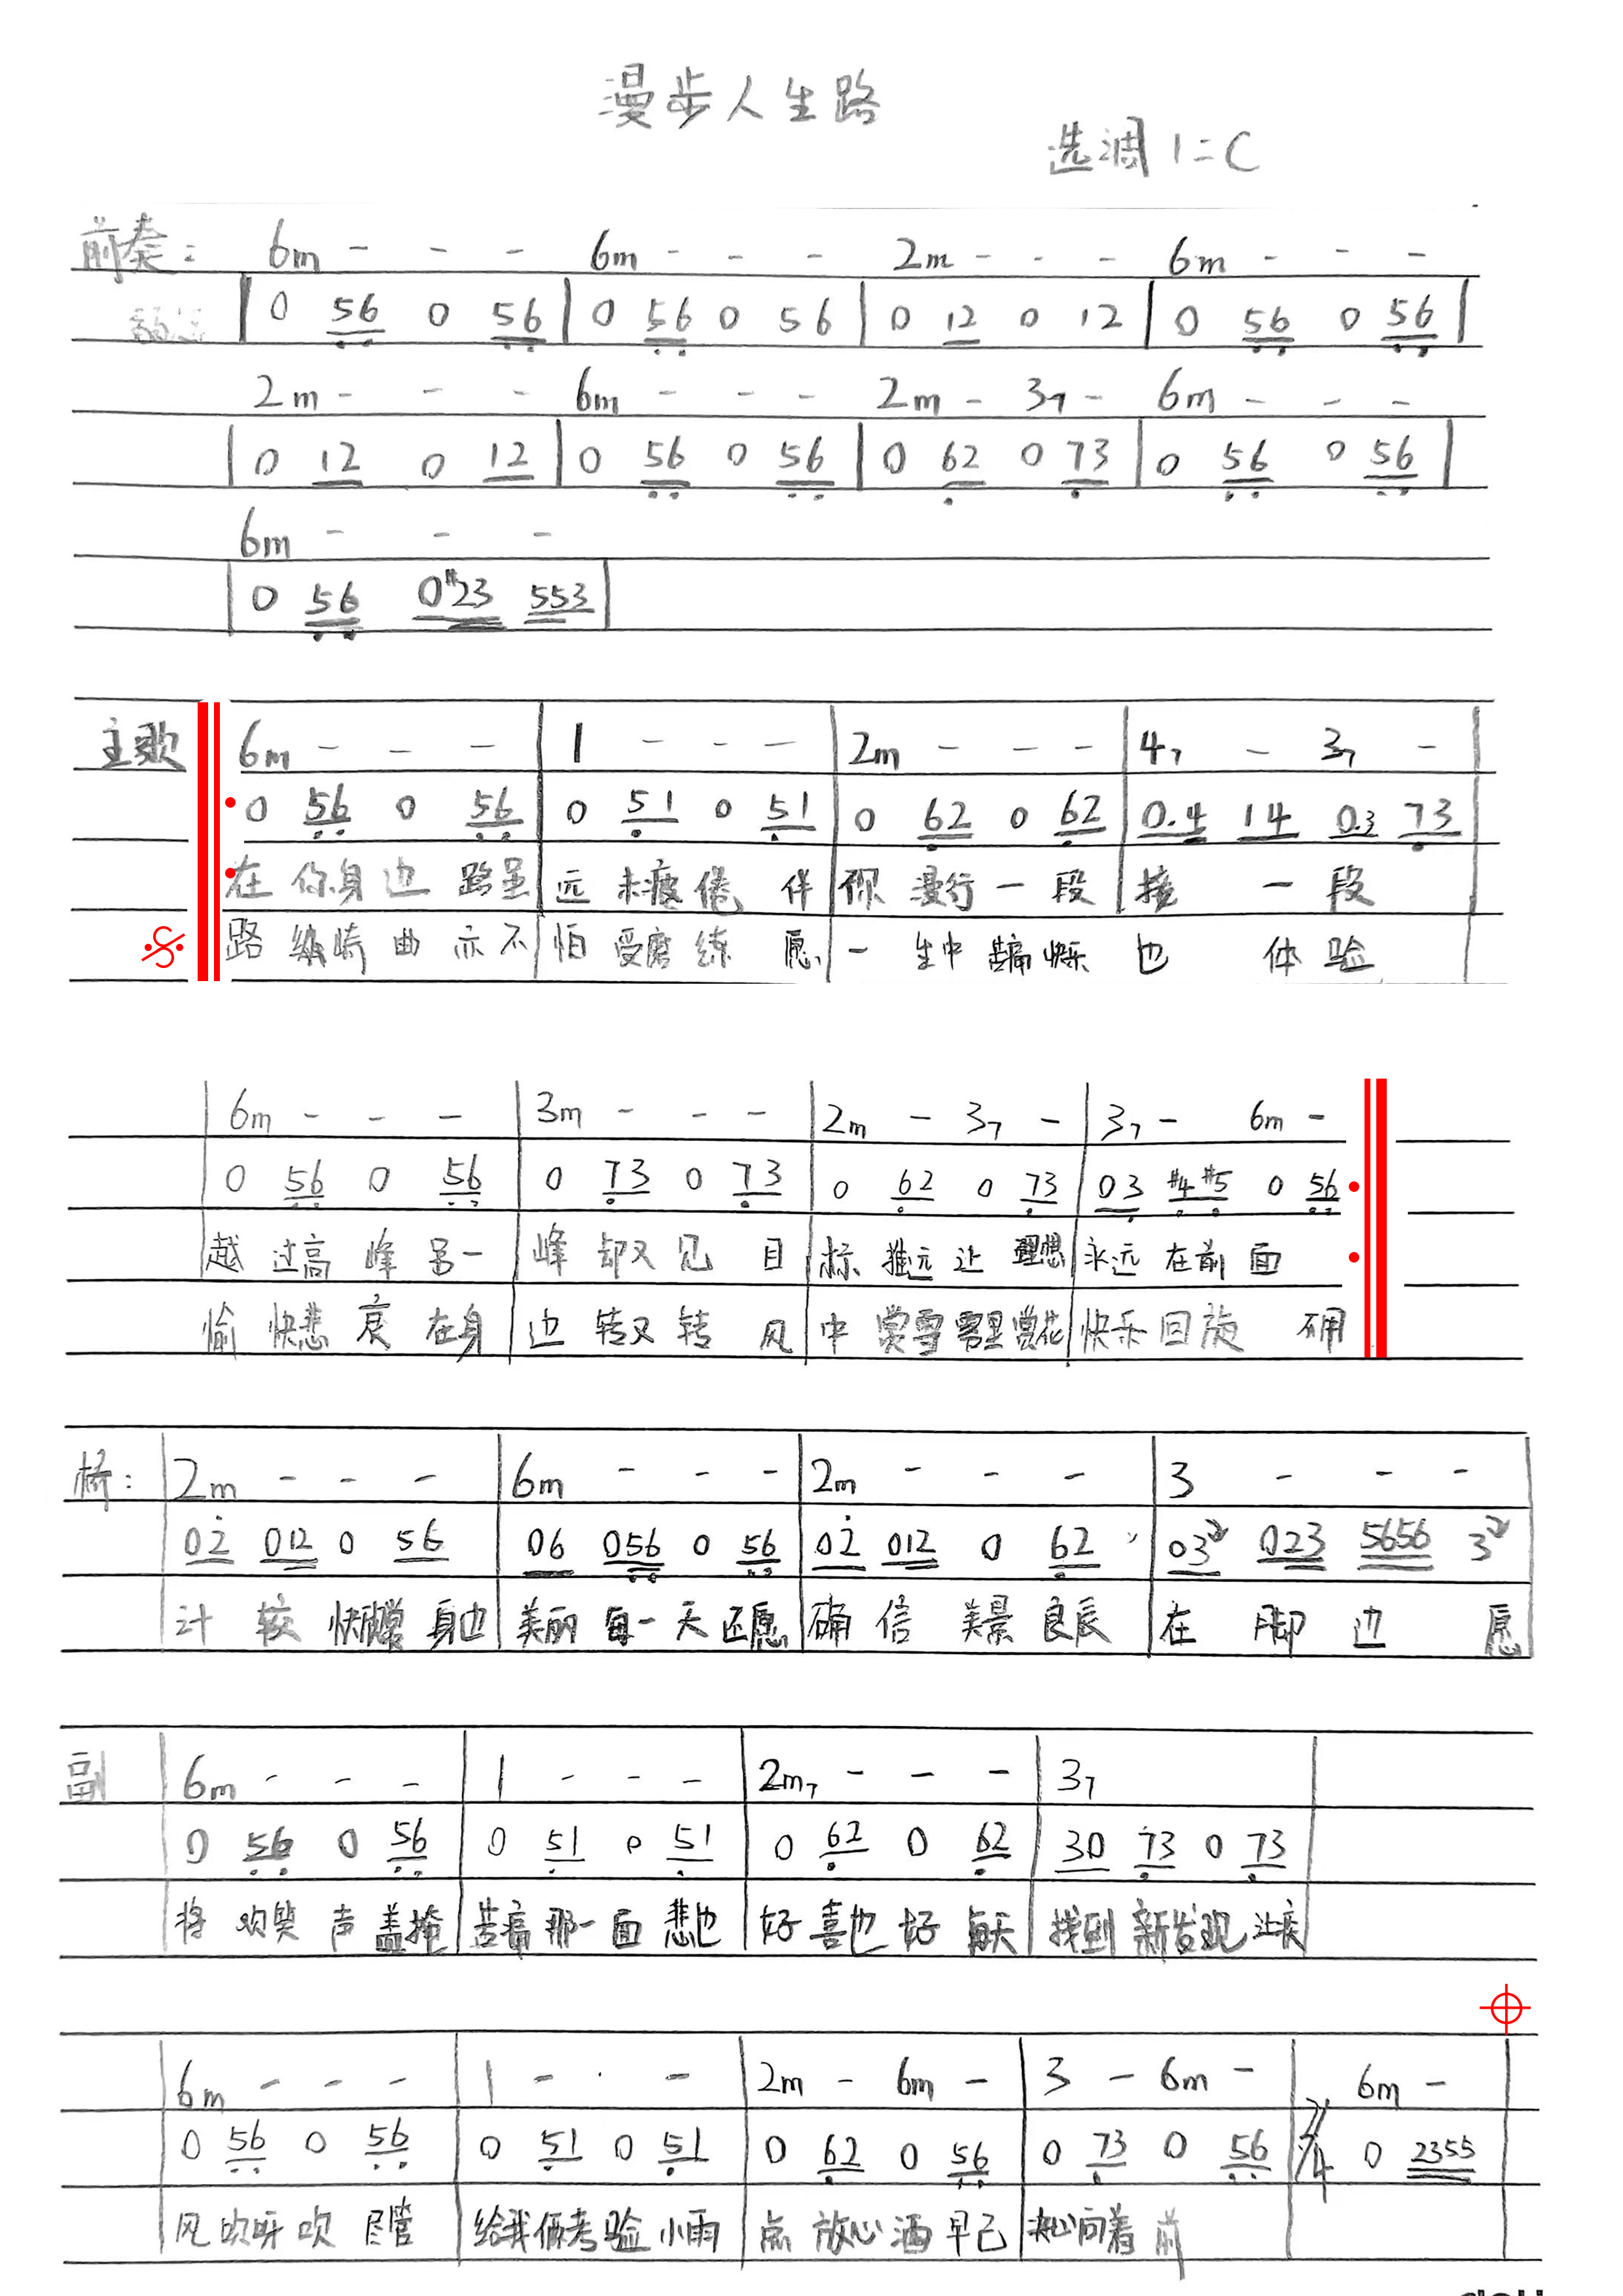 漫步人生路
选调 1=C
前奏: 6m - - - 6m - - - 2m - - - 6m - - -
0 56 0 56 | 0 56 0 56 | 0 12 0 12 | 0 56 0 56
2m - - - 6m - - - 2m - 37 - 6m - - -
0 12 0 12 | 0 56 0 56 | 0 62 0 73 | 0 56 0 56
6m - - -
0 56 0#23 553
主歌 6m - - - | 1 - - - | 2m - - - | 47 - 37 -
0 56 0 56 | 0 51 0 51 | 0 62 0 62 | 0.4 14 0.3 73
在你身边路虽 | 远未疲倦 伴 | 你漫行一段 | 接一段
路 崎曲亦不 | 怕受磨练 愿 | 一生中苦痛快乐 | 也体验
6m - - - | 3m - - - | 2m - 37 - | 37 - 6m -
0 56 0 56 | 0 73 0 73 | 0 62 0 73 | 03 #4#5 0 56
越过高峰另一 | 峰却又见 目 | 标推远让理想 | 永远在前面
愉快悲哀在身 | 边转又转 风 | 中赏雪雾里赏花 | 快乐回旋 确
桥: 2m - - - | 6m - - - | 2m - - - | 3 - - -
02 012 0 56 | 06 056 0 56 | 02 012 0 62 | 03 023 5656 3
计较快 身边 | 美丽每一天还愿 | 确信美景良辰 | 在脚边 愿
副 6m - - - | 1 - - - | 2m7 - - - | 37
0 56 0 56 | 0 51 0 51 | 0 62 0 62 | 30 73 0 73
将欢笑声盖掩 | 苦痛那一面悲也 | 好喜也好每天 | 找到新发现让疾
6m - - - | 1 - · - | 2m - 6m - | 3 - 6m - | 6m -
0 56 0 56 | 0 51 0 51 | 0 62 0 56 | 0 73 0 56 | 2/4 0 2355
风吹呀吹尽管 | 给我俩考验小雨 | 点放心洒早已 | 决心向着前